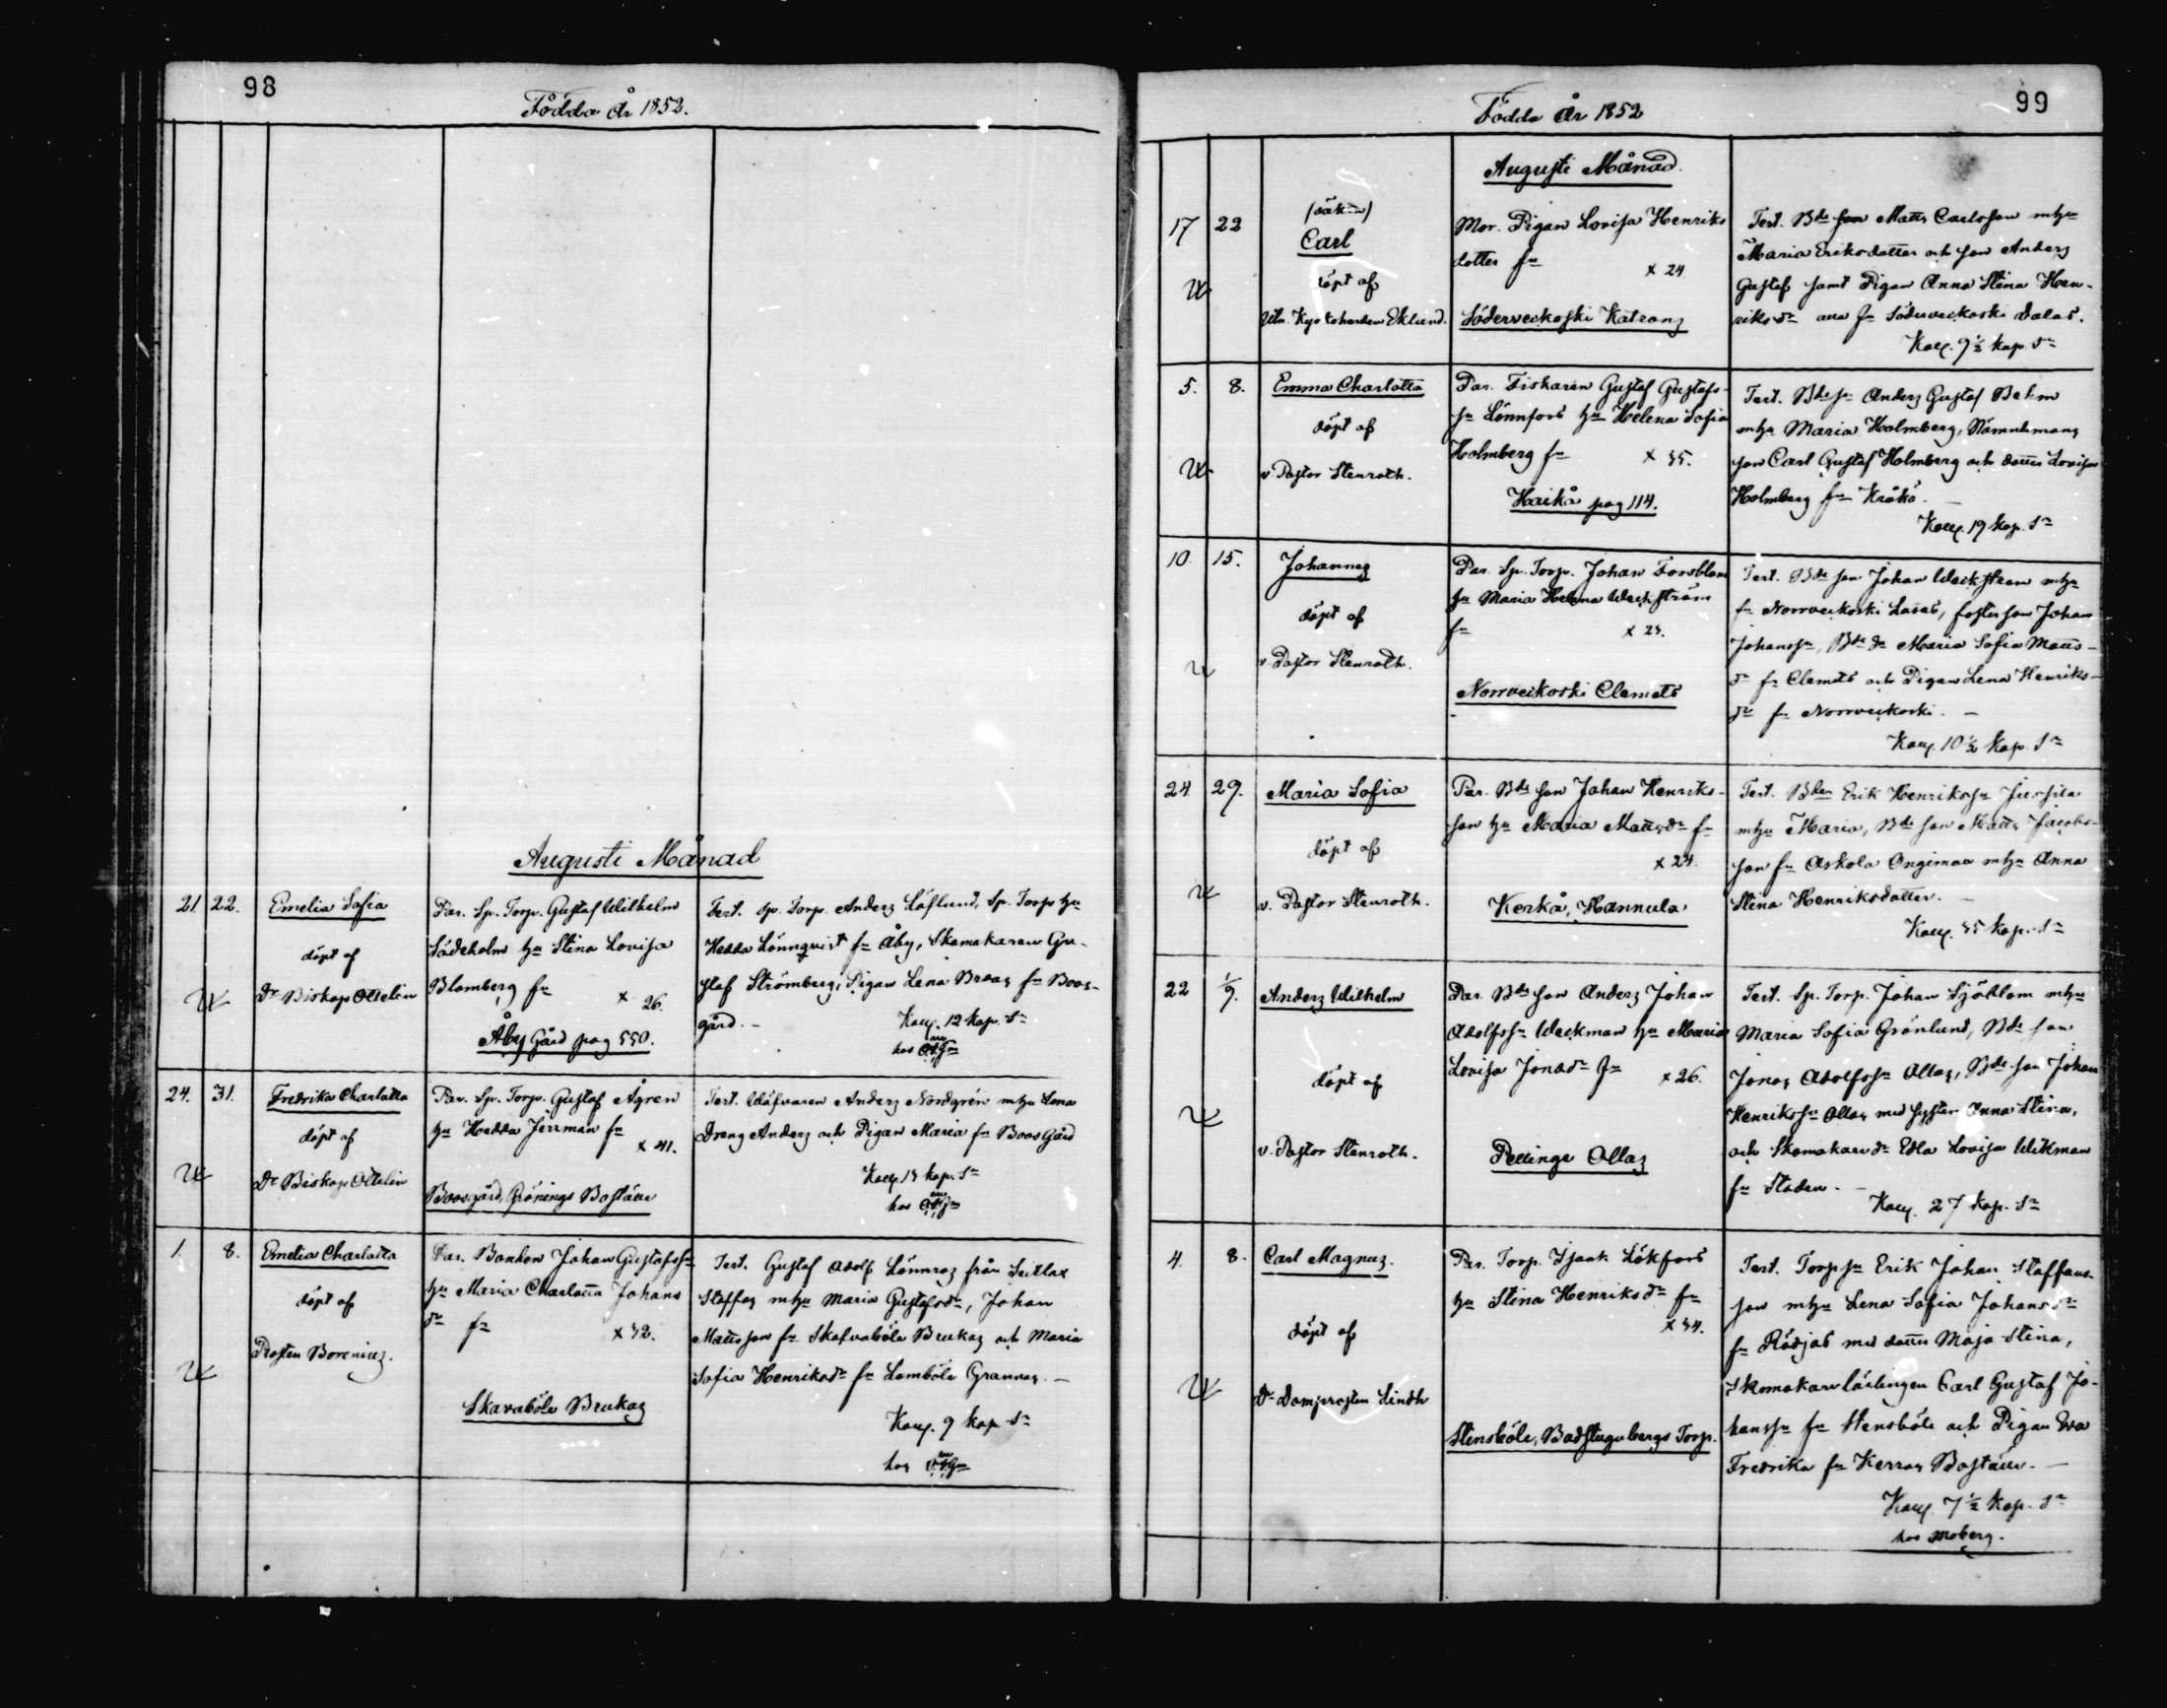 98
Födda År 1852.
Augusti Månad
21 22. Emelia Sofia
döpt af
Dr Biskop Ottelin
Par. Sp. Torp. Gustaf Wilhelm
Söderholm hu Stina Lovisa
Blomberg fr
x 26.
Åby Gård pag 550.
Test. Sp. Torp. Anders Löflund, Sp. Torp hu
Hedda Lönnqvist fr Åby, Skomakaren Gu-
staf Strömberg, Pigan Lena Braas fr Boos-
gård. -
Koll. 12 kop. Sr
hos
24. 31. Fredrika Charlotta
döpt af
Dr Biskop Ottelin
Par. Sp. Torp. Gustaf Ågren
hu Hedda Jerrman fr
x 41.
Boosgård, Grönings Boställe
Test. Wäfvaren Anders Nordgrén mhu Lena
Dreng Anders och Pigan Maria fr Boos Gård
Koll. 15 kop. Sr
hos
1. 8. Emelia Charlotta
döpt af
Prosten Borenius.
Par. Bonden Johan Gustafssn
hu Maria Charlotta Johans
dr fr
x 32.
Skavaböle Brukas
Test. Gustaf Adolf Lönnros från Seitlax
Staffas mhu Maria Gustafsdr, Johan
Mattsson fr Skafvaböle Brukas och Maria
Sofia Henriksdr fr Lomböle Grannas. -
Koll. 9 kop Sr
hos
99
Födda År 1852
Augusti Månad.
17 22
(oäkta)
Carl
döpt af
Eklund.
Mor. Pigan Lovisa Henriks
dotter fr
x 24.
Söderveckoski Katrans
Test. Bdeson Matts Carlsson mhu
Maria Eriksdotter och son Anders
Gustaf samt Pigan Anna Stina Hen-
riksdr alla fr Söderveckoski Dalas.
Koll. 9½ kop. Sr
5. 8. Emma Charlotta
döpt af
v. Pastor Stenroth.
Par. Fiskaren Gustaf Gustafs-
sn Lönnfors hu Helena Sofia
Holmberg fr
x 35.
Haikå pag 114.
Test. Bdesn Anders Gustaf Behm
mhu Maria Holmberg, Nämndemans
son Carl Gustaf Holmberg och dotter Lovisa
Holmberg fr Kråkö. -
Koll. 19 kop. Sr
10. 15. Johannes
döpt af
v. Pastor Stenroth.
Par. Sp. Torp. Johan Forsblom
hu Maria Helena Weckström
fr
x 25.
Norrveckoski Clemets
Test. Bdeson Johan Weckström mhu
fr Norrveckoski Lasas, fosterson Johan
Johanssn, Bdedr Maria Sofia Matts-
dr fr Clemets och Pigan Lena Henriks-
dr fr Norrveckoski. -
Koll. 10½ kop. Sr
24. 29. Maria Sofia
döpt af
v. Pastor Stenroth.
Par. Bdeson Johan Henriks-
son hu Maria Mattsdr fr
x 24.
Kerkå, Hannula
Test. Bden Erik Henrikssn Jussila
mhu Maria, Bdeson Matts Jacobs-
son fr Askola Ongimaa mhu Anna
Stina Henriksdotter. -
Koll. 35 kop. Sr
22 1/9. Anders Wilhelm
döpt af
v. Pastor Stenroth.
Par. Bdeson Anders Johan
Adolfssn Weckman hu Maria
Lovisa Jonasdr fr
x 26.
Pellinge Ollas
Test. Sp. Torp. Johan Sjöblom mhu
Maria Sofia Grönlund, Bdeson
Jonas Adolfssn Ollas, Bdeson Johan
Henrikssn Ollas med syster Anna Stina,
och Skomakaredr Edla Lovisa Wikman
fr Staden. -
Koll. 27 kop. Sr
4. 8. Carl Magnus.
döpt af
Dr Domprosten Lindh
Par. Torp. Isaak Lökfors
hu Stina Henriksdr fr
x 34.
Stensböle, Badstugubergs Torp.
Test. Torpsn Erik Johan Staffans-
son mhu Lena Sofia Johansdr
fr Rödjas med dotter Maja Stina,
Skomakarelärlingen Carl Gustaf Jo-
hanssn fr Stensböle och Pigan Eva
Fredrika fr Kerras Boställe. -
Koll. 7½ kop. Sr
hos Moberg.